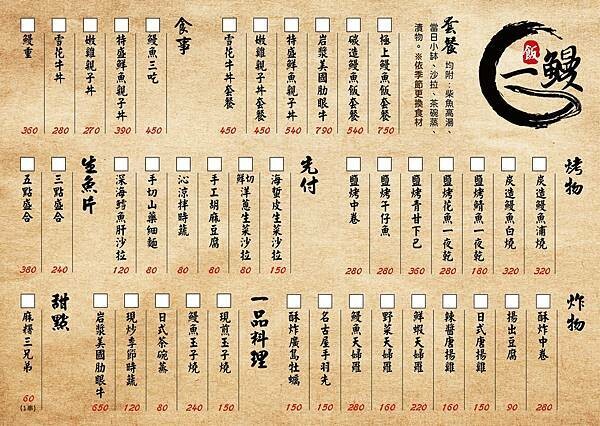 鰻
一
飯
套餐
均附:柴魚高湯、
當日小缽、沙拉、茶碗蒸、
漬物。※依季節更換食材
極上鰻魚飯套餐 750
碳造鰻魚飯套餐 540
岩漿美國肋眼牛 790
特盛鮮魚親子丼 540
嫩雞親子丼套餐 450
雪花牛丼套餐 450
食事
鰻魚三吃 450
特盛鮮魚親子丼 390
嫩雞親子丼 270
雪花牛丼 280
鰻重 360
烤物
炭造鰻魚浦燒 320
炭造鰻魚白燒 320
鹽烤鯖魚一夜乾 180
鹽烤花魚一夜乾 280
鹽烤青甘下巴 360
鹽烤午仔魚 280
鹽烤中卷 280
先付
海蜇皮生菜沙拉 150
鮮切洋蔥生菜沙拉 80
手工胡麻豆腐 80
沁涼拌時蔬 80
手切山藥細麵 80
深海鱈魚肝沙拉 120
生魚片
三點盛合 240
五點盛合 380
炸物
酥炸中卷 280
揚出豆腐 90
日式唐揚雞 150
辣醬唐揚雞 160
鮮蝦天婦羅 220
野菜天婦羅 160
鰻魚天婦羅 350
名古屋手羽先 150
酥炸廣島牡蠣 150
一品料理
現煎玉子燒 150
鰻魚玉子燒 240
日式茶碗蒸 80
現炒季節時蔬 120
岩漿美國肋眼牛 650
甜點
麻糬三兄弟 60
(1串)